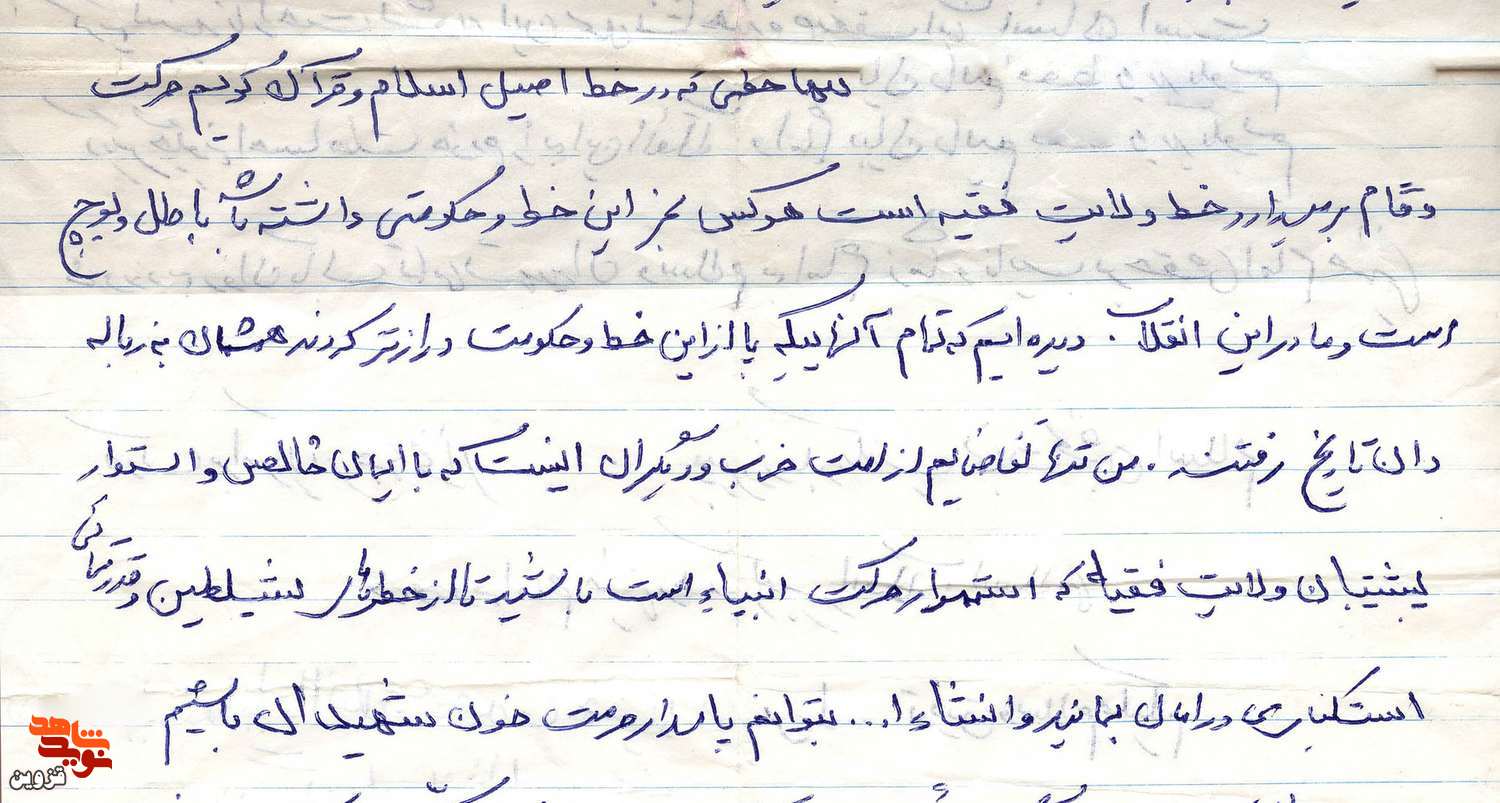 تنها خطی که در خط اصیل اسلام و قرآن کریم حرکت
و قام برمیدارد خط ولایت فقیه است هرکس بجز این خط و حکومتی داشته باشد باطل و پوچ
است و ما در این انقلاب دیده ایم که تمام آنهاییکه پا از این خط و حکومت درازتر کردند همشان به زباله
دان تاریخ رفتند . من تنها تقاضایم از امت حزب و دیگران اینست که با ایمان خالص و استوار
پشتیبان ولایت فقیه که استمرار حرکت انبیاء است باشید تا از خطرهای شیاطین و قدرتهای
استکباری در امان بمانید و انشاء ا... بتوانیم پاسدار حرمت خون شهیدان باشیم
نوید شاهد
قزوین